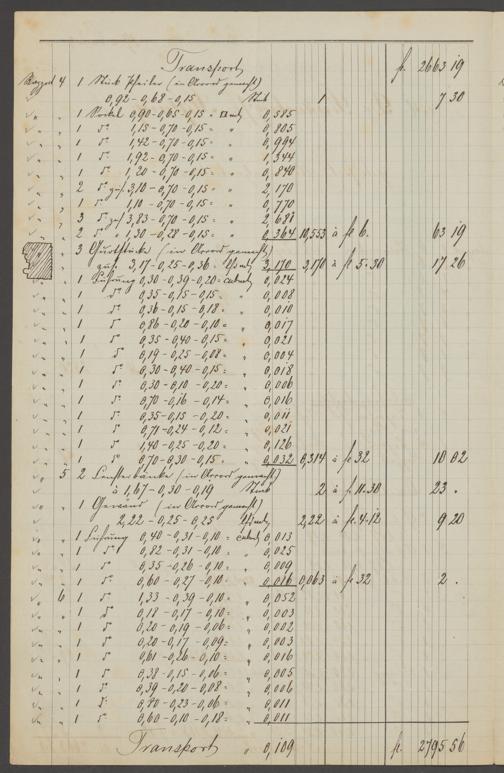 Transport fr. 2663 19
4 1 Stück Pfeiler (in Accord gemacht)
0,92 - 0,68 - 0,15 Stück 1 7 30
1 Sockel 0,90 - 0,65 - 0,15 = □mtr 0,585
1 do 1,15 - 0,70 - 0,15 = " 0,805
1 do 1,42 - 0,70 - 0,15 = " 0,994
1 do 1,92 - 0,70 - 0,15 = " 1,344
1 do 1,20 - 0,70 - 0,15 = " 0,840
2 do zus. 3,10 - 0,70 - 0,15 = " 2,170
1 do 1,10 - 0,70 - 0,15 = " 0,770
3 do zus. 3,83 - 0,70 - 0,15 = " 2,681
2 do " 1,30 - 0,28 - 0,15 = " 0,364 10,553 à fr 6. 63 19
3 Gurtstücke (in Accord gemacht)
zus. 3,17 - 0,25 - 0,36 = 3,170 3,170 à fr 5.30 17 26
1 0,30 - 0,39 - 0,20 = cubmtr 0,024
1 do 0,35 - 0,15 - 0,15 = " 0,008
1 do 0,36 - 0,15 - 0,18 = " 0,010
1 do 0,86 - 0,20 - 0,10 = " 0,017
1 do 0,35 - 0,40 - 0,15 = " 0,021
1 do 0,19 - 0,25 - 0,08 = " 0,004
1 do 0,30 - 0,40 - 0,15 = " 0,018
1 do 0,30 - 0,10 - 0,20 = " 0,006
1 do 0,70 - 0,16 - 0,14 = " 0,016
1 do 0,35 - 0,15 - 0,20 = " 0,011
1 do 0,74 - 0,24 - 0,12 = " 0,021
1 do 1,40 - 0,25 - 0,20 = " 0,126
1 do 0,70 - 0,30 - 0,15 = " 0,032 0,314 à fr 32 10 02
5 2 Fensterbänke (in Accord gemacht)
à 1,67 - 0,30 - 0,19 Stück 2 à fr. 11.30 23 .
1 Gewänd (in Accord gemacht)
2,22 - 0,25 - 0,25 2,22 à fr. 4.12 9 20
1 0,40 - 0,31 - 0,10 = cubmtr 0,013
1 do 0,82 - 0,31 - 0,10 = " 0,025
1 do 0,35 - 0,26 - 0,10 = " 0,009
1 do 0,60 - 0,27 - 0,10 = " 0,016 0,063 à fr 32 2 .
6 1 do 1,33 - 0,39 - 0,10 = " 0,052
1 do 0,18 - 0,17 - 0,10 = " 0,003
1 do 0,20 - 0,19 - 0,06 = " 0,002
1 do 0,20 - 0,17 - 0,09 = " 0,003
1 do 0,61 - 0,26 - 0,10 = " 0,016
1 do 0,38 - 0,15 - 0,06 = " 0,005
1 do 0,39 - 0,20 - 0,08 = " 0,006
1 do 0,80 - 0,23 - 0,06 = " 0,011
1 do 0,60 - 0,10 - 0,18 = " 0,011
Transport " 0,109 fr. 2795 56